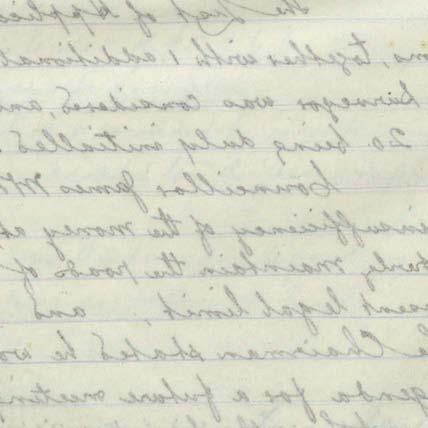 the List of Applica
ns, together with 1 additional
Surveyor was considered, and
20 being duly initialled
Councillor James
insufficiency of the money
maintain the roads of
esent legal limit, and
Chairman stated he wo
genda for a future meeting